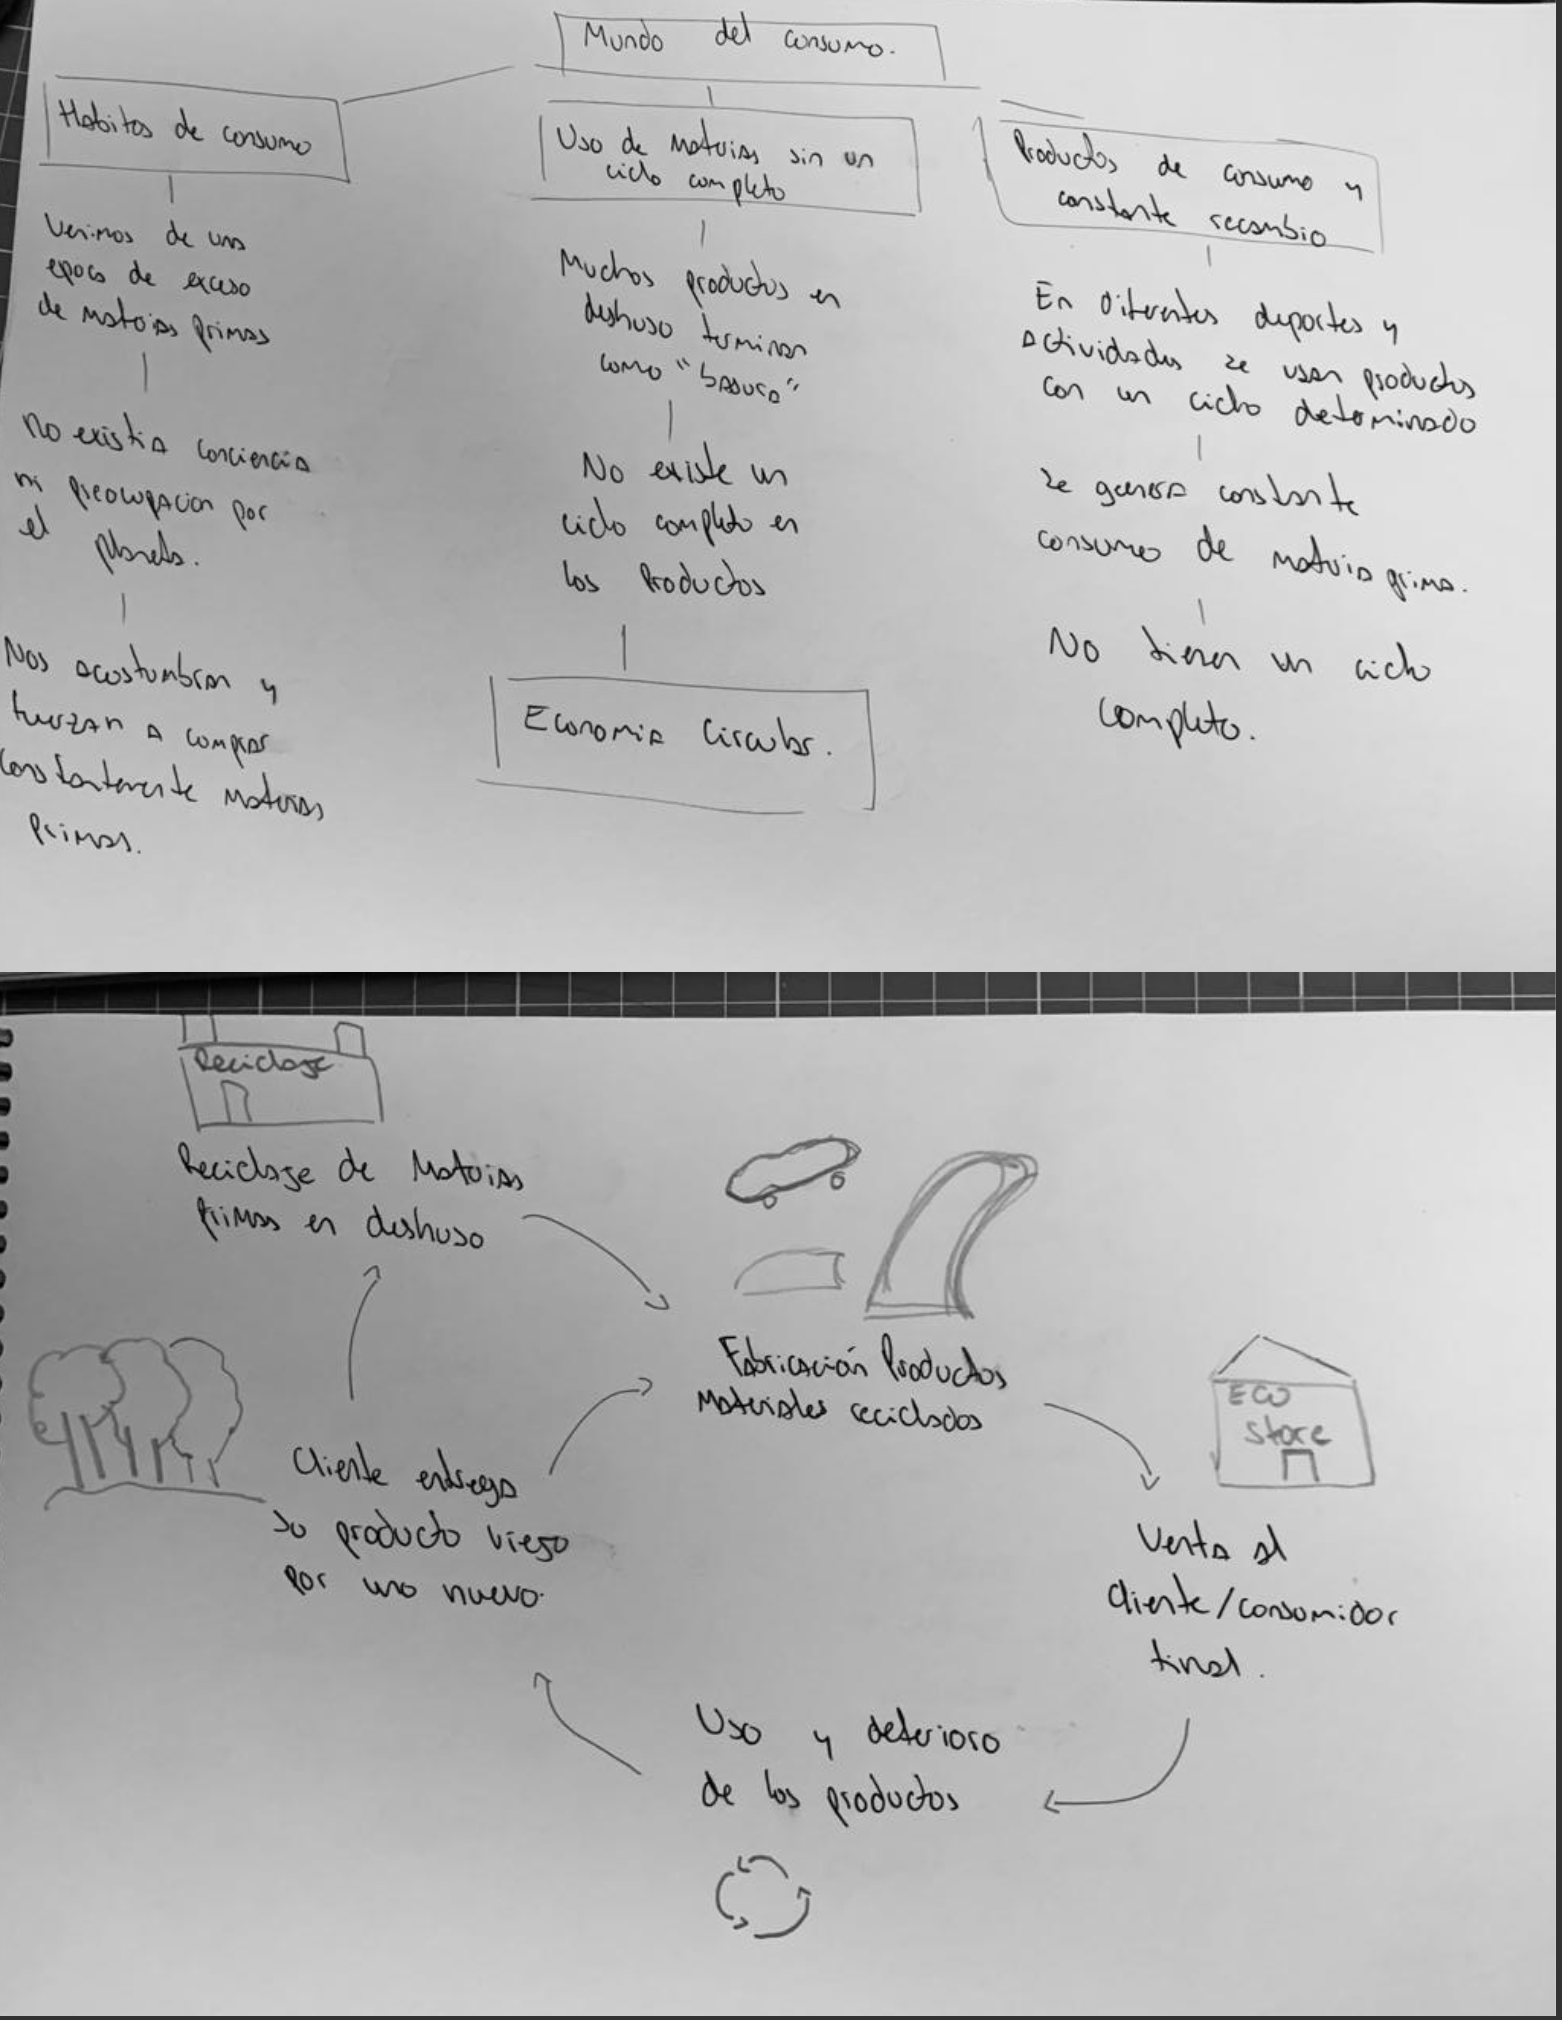 Mundo del consumo.
Habitos de consumo
Venimos de una
epoca de exceso
de materias primas
no existia conciencia
ni preocupacion por
el planeta.
Nos acostumbran y
fuerzan a comprar
constantemente materias
primas.
Uso de materias sin un
ciclo completo
Muchos productos en
deshuso terminan
como "basura"
No existe un
ciclo completo en
los Productos
Economia Circular.
Productos de consumo y
constante recambio
En diferentes deportes y
actividades se usan productos
con un ciclo determinado
se genera constante
consumo de materia prima.
No tienen un ciclo
completo.
Reciclaje
Reciclaje de Materias
primas en deshuso
Fabricación Productos
Materiales reciclados
ECO
store
Venta al
cliente/consumidor
final.
Uso y deterioro
de los productos
Cliente entrega
su producto viejo
por uno nuevo.